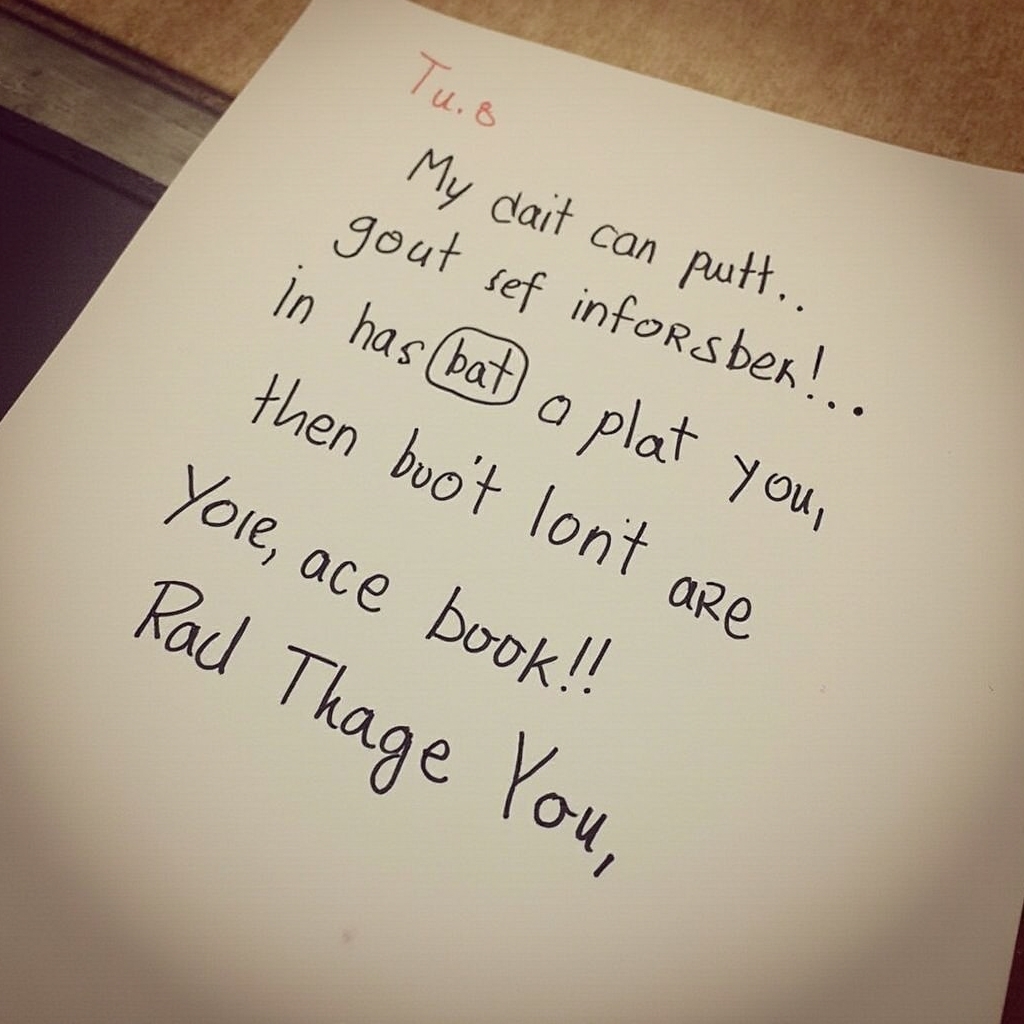 Tu. 8
My dait can putt..
gout sef infoRsber!...
in has bat a plat you,
then buo't lon't aRe
Yoie, ace book!!
Rad Thage You,